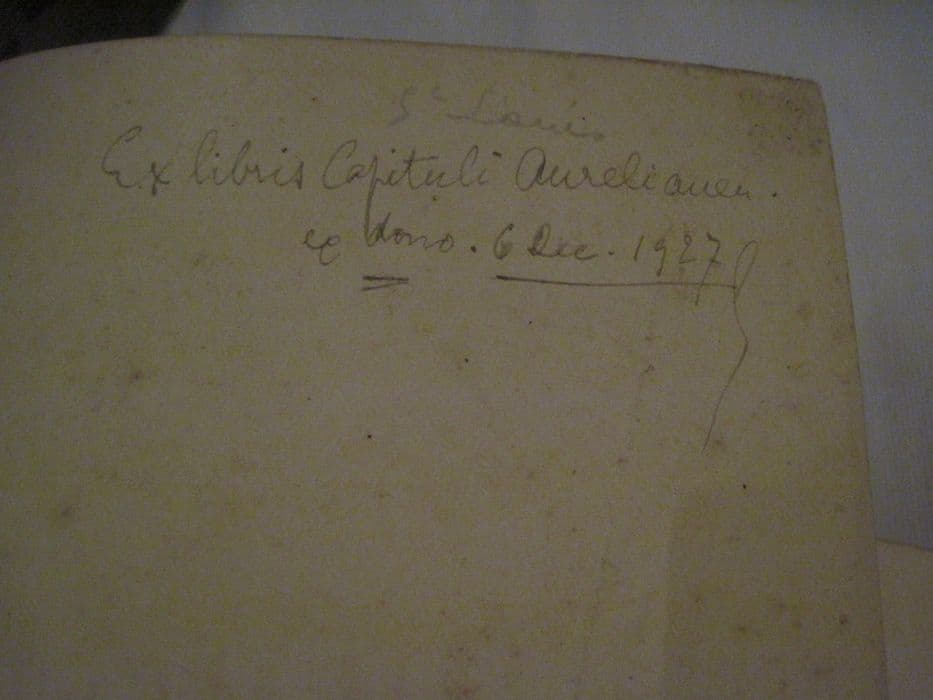 St Louis
Ex libris Capituli Aurelianen.
ex dono. 6 Dec. 1927